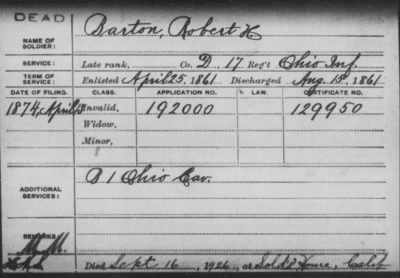 DEAD
NAME OF SOLDIER: Barton, Robert H
SERVICE: Late rank, Co. D, 17 Reg't Ohio Inf.
TERM OF SERVICE: Enlisted April 25, 1861 Discharged Aug. 15, 1861
DATE OF FILING. CLASS. APPLICATION NO. LAW. CERTIFICATE NO.
1874, April Invalid, 192000 129950
Widow,
Minor,
ADDITIONAL SERVICES: B 1 Ohio Cav.
REMARKS:
Died Sept 16, 1926, at Sold Home, Calif